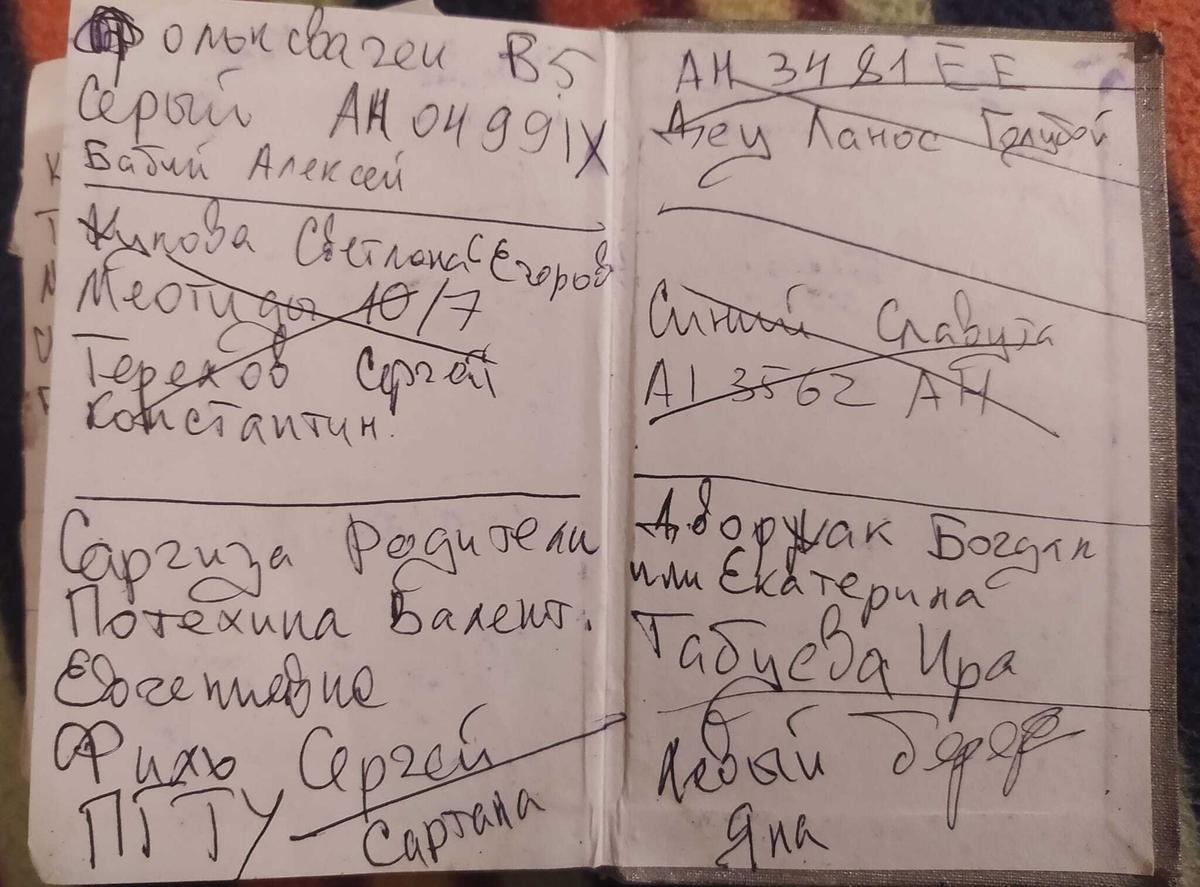 Фольксваген В5
Серый АН 0499 IX
Бабий Алексей
Жукова Светлана Егоров
Меотиды 10/7
Терехов Сергей
Константин.
Саргиза Родители
Потехина Валент.
Евгениевна
Филь Сергей
ПГТУ –
Сартана
АН 3481 ЕЕ
Деу Ланос Голубой
Синий Славута
АІ 3562 АН
Дворжак Богдан
или Екатерина
Табуева Ира
Левый берег
Яна